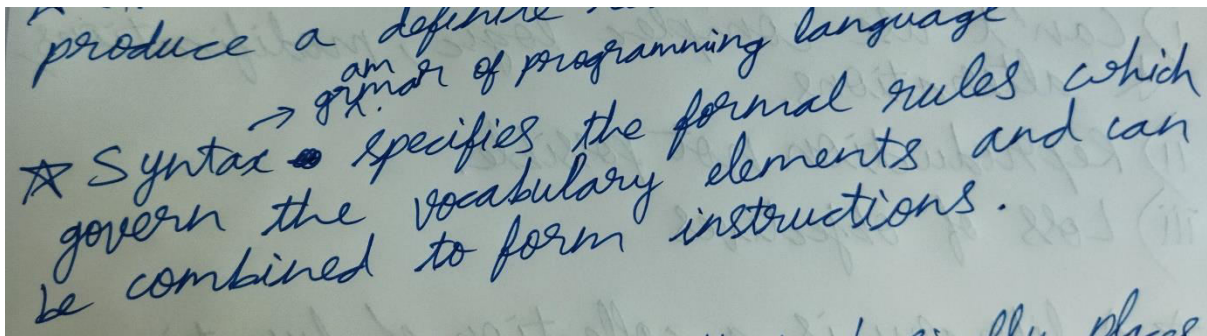 produce a definite
→ grammar of programming language
☆ Syntax specifies the formal rules which
govern the vocabulary elements and can
be combined to form instructions.
place